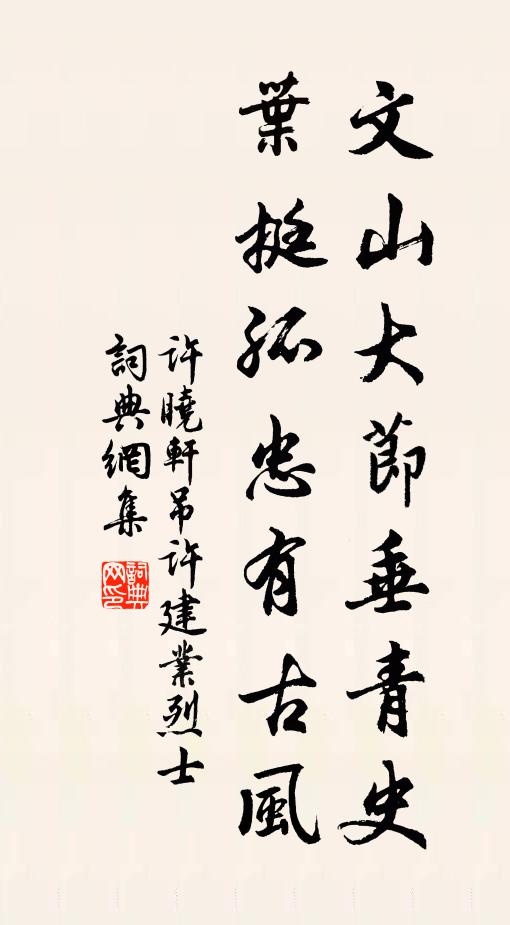 文山大節垂青史
葉挺孤忠有古風
許曉軒吊許建業烈士
詞典網集
詞典網印